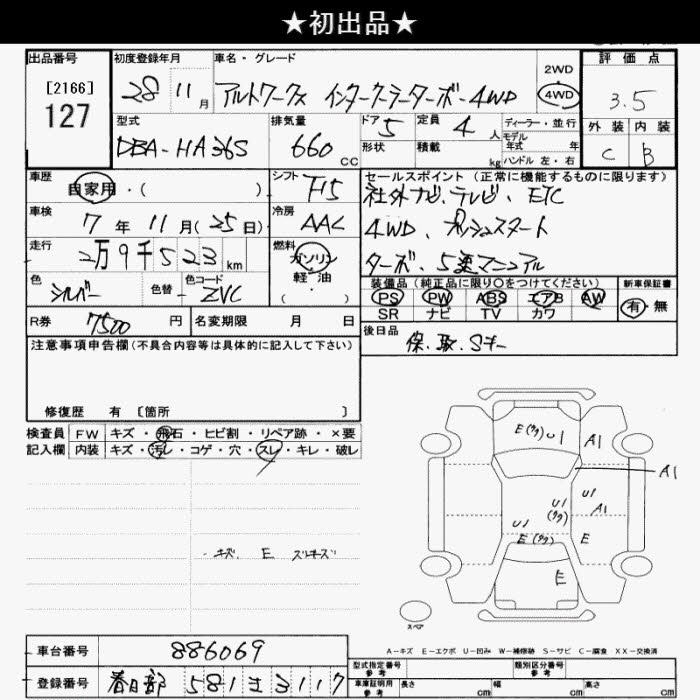 ★初出品★
出品番号 初度登録年月 車名・グレード 2WD 評価点
[2166] 28 11月 アルトワークス インタークーラーターボ・4WD 4WD 3.5
127 型式 排気量 ドア 5 定員 4人 ディーラー・並行 外装 内装
DBA-HA36S 660cc 形状 積載 kg モデル年式 年 ハンドル 左・右 C B
車歴 自家用・( ) シフト F5 セールスポイント(正常に機能するものに限ります)
車検 7年11月(25日) 冷房 AAC 社外ナビ、テレビ、ETC
走行 2万9千523km 燃料 ガソリン 軽・油 ( ・ ) 4WD、プッシュスタート
色 シルバー 色替 色コード ZVC ターボ、5速マニュアル
装備品(純正品に限り○をつけてください) 新車保証書
PS PW ABS エアB AW 有・無
SR ナビ TV カワ
R券 7500円 名変期限 月 日 後日品 保、取、Sキー
注意事項申告欄(不具合内容等は具体的に記入して下さい)
修復歴 有 [箇所 ]
検査員 FW キズ・飛石・ヒビ割・リペア跡・×要
記入欄 内装 キズ・汚レ・コゲ・穴・スレ・キレ・破レ
E(タタ) U1 A1
A1
U1 U1 (タタ) A1
E(タタ) E
キズ E スレキズ
E
スペア
A-キズ E-エクボ U-凹み W-補修跡 S-サビ C-腐食 XX-交換済
車台番号 886069
登録番号 春日部 581 さ 3117
型式指定番号 参考 類別区分番号 参考
車庫証明用 参考 長さ cm 幅 cm 高さ cm